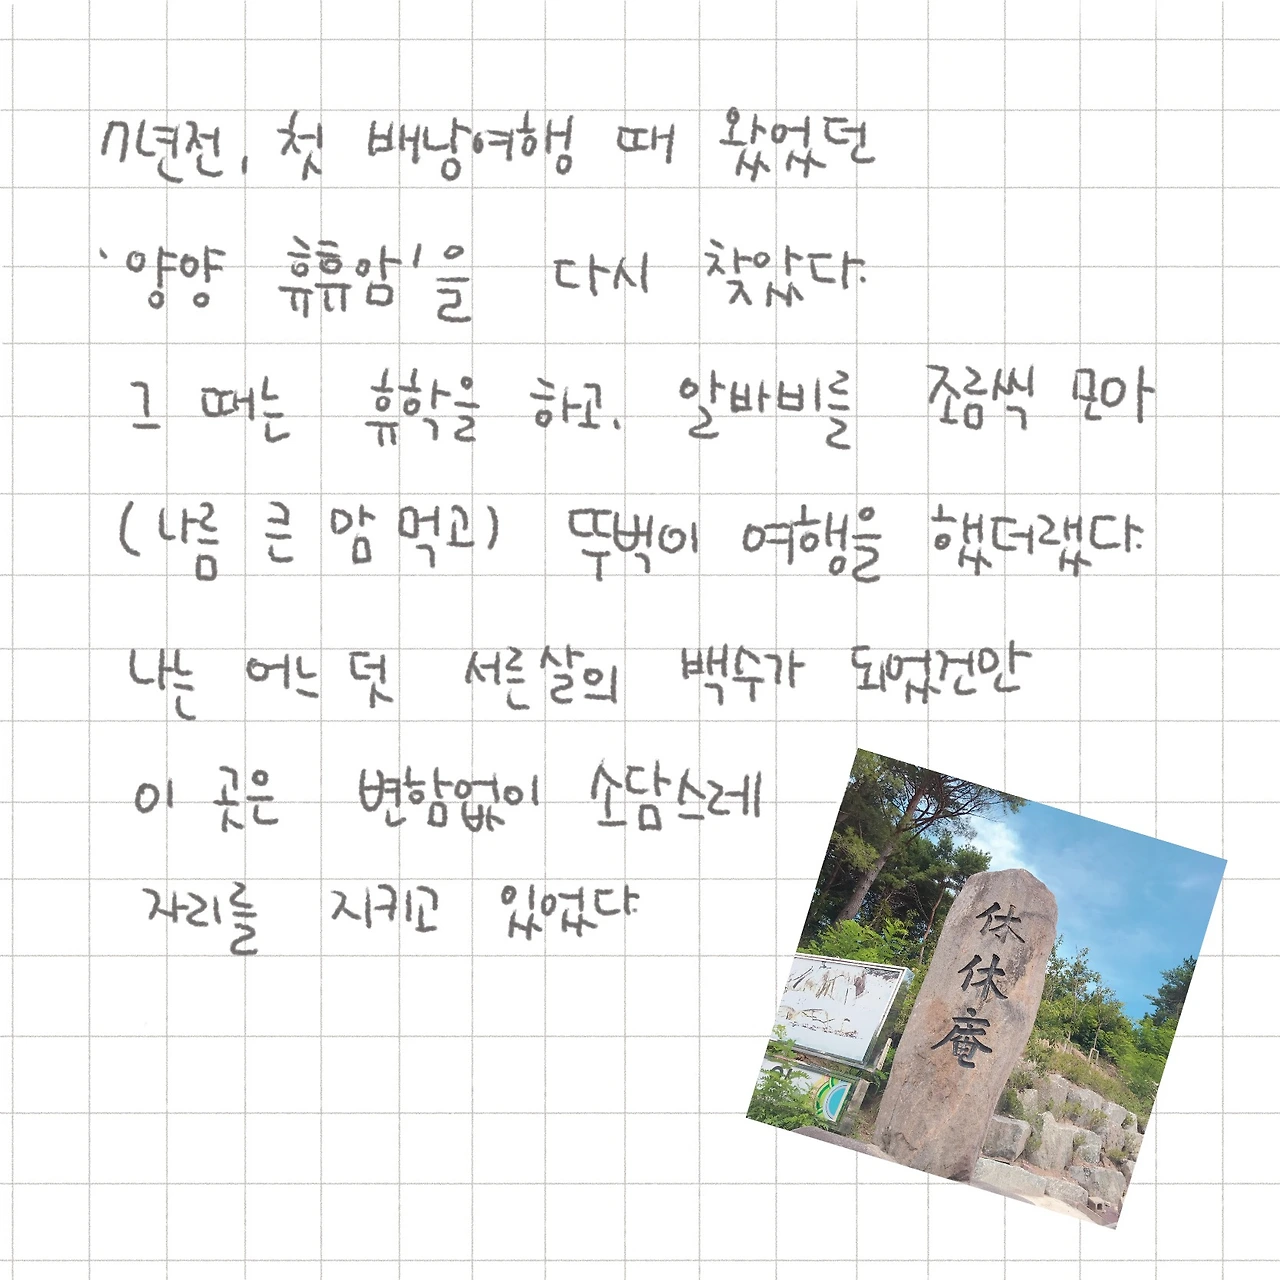 7년전, 첫 배낭여행 때 왔었던
'양양 휴휴암'을 다시 찾았다.
그 때는 휴학을 하고, 알바비를 조금씩 모아
(나름 큰 맘 먹고) 뚜벅이 여행을 했더랬다.
나는 어느 덧 서른살의 백수가 되었건만
이 곳은 변함없이 소담스레
자리를 지키고 있었다.
休
休
庵